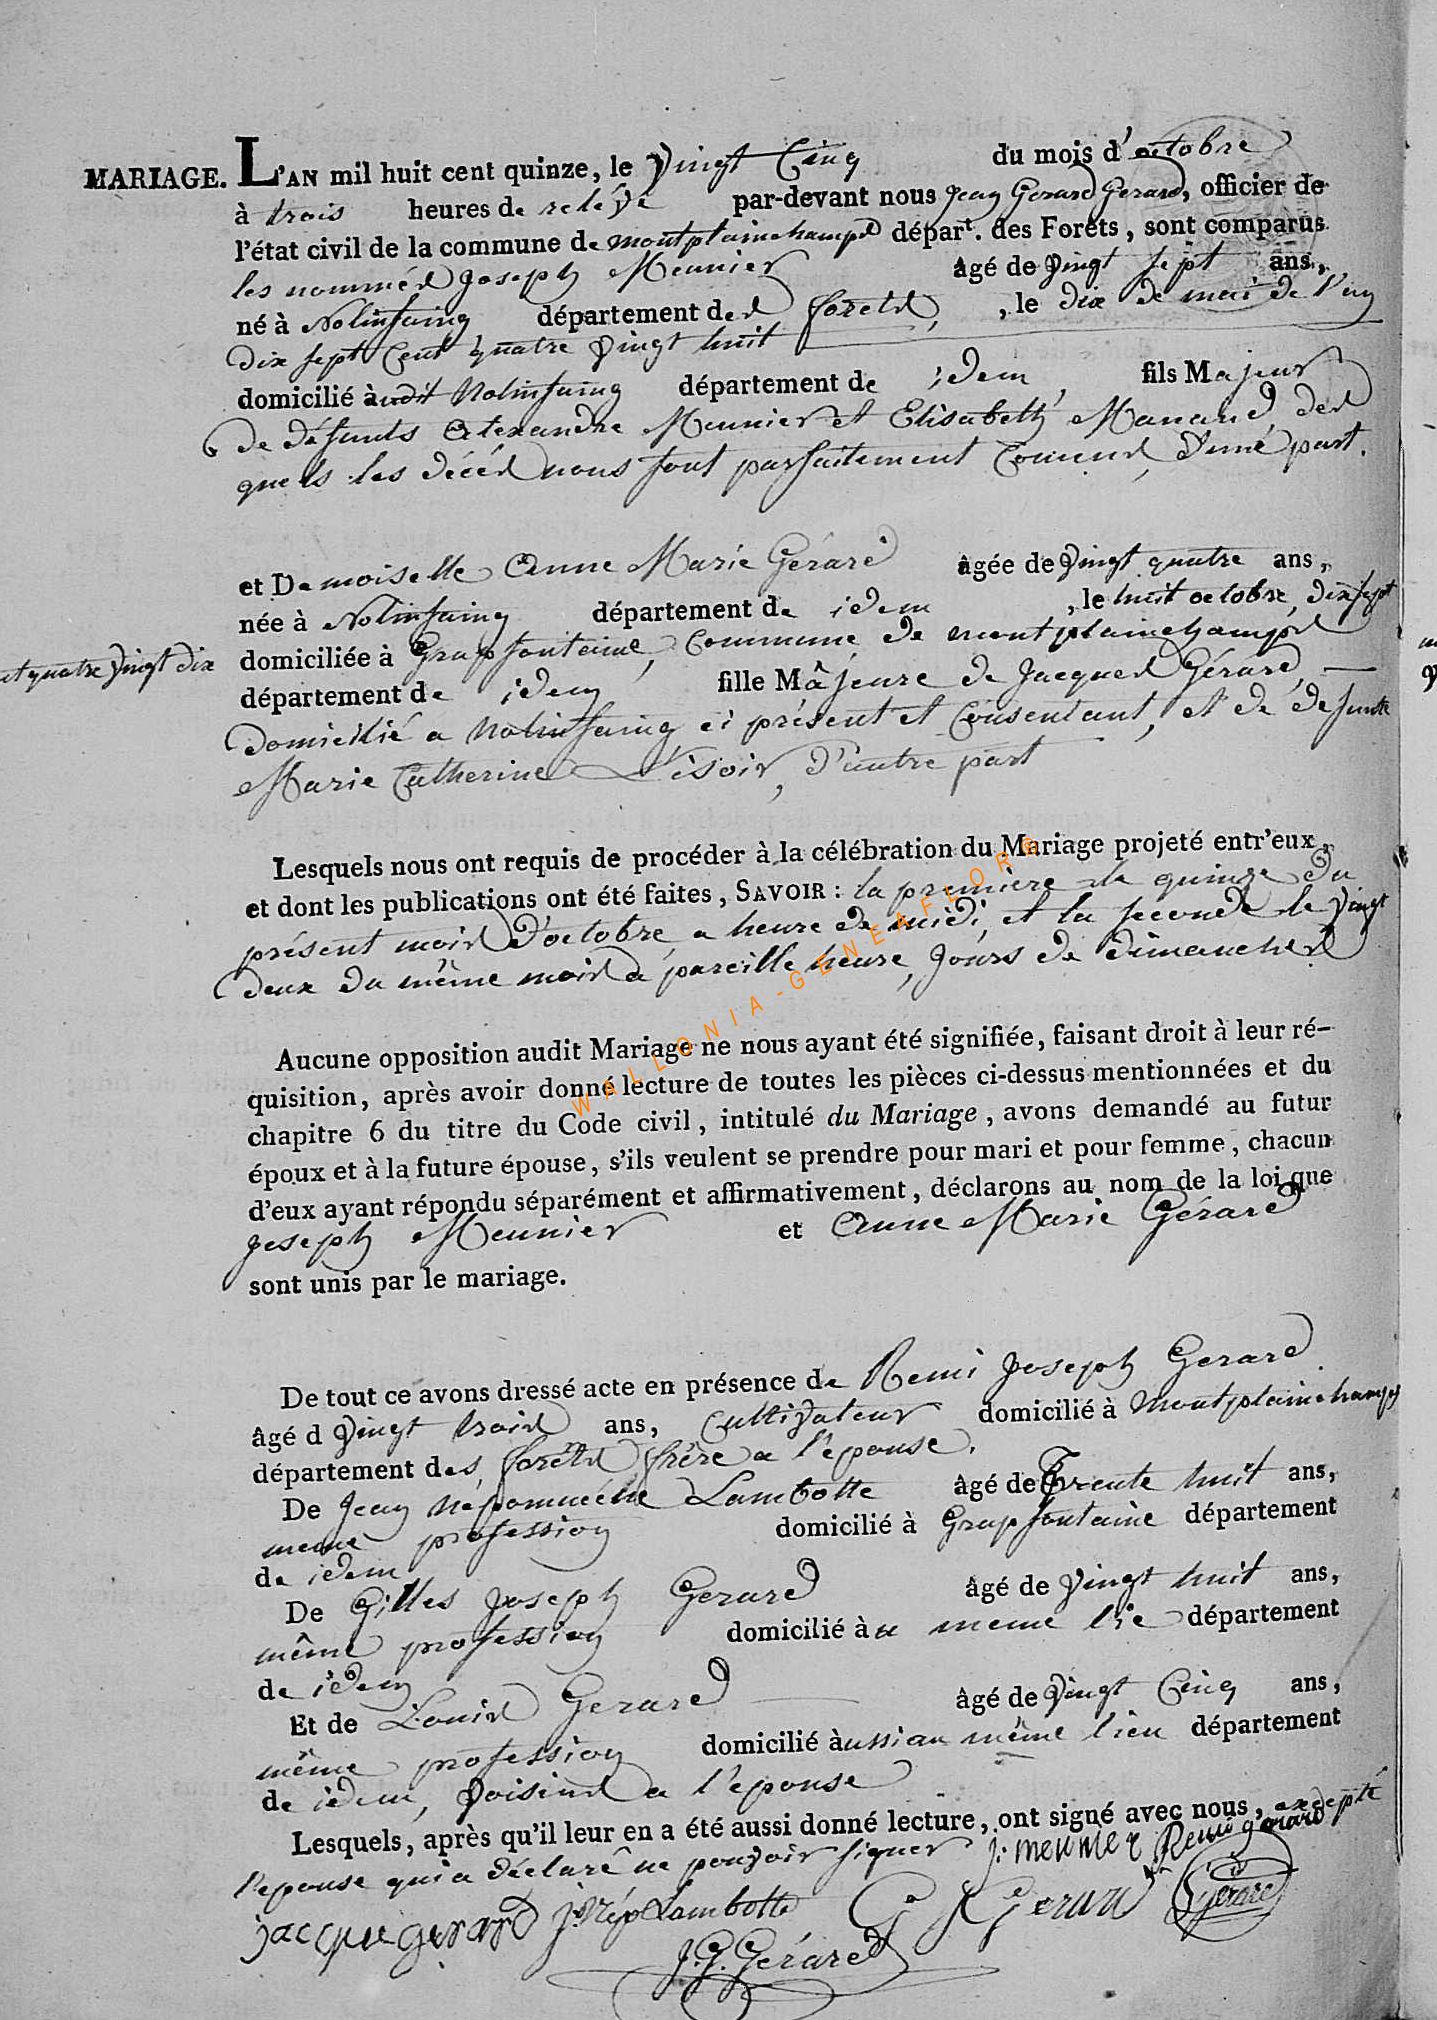 MARIAGE. L'AN mil huit cent quinze, le vingt Cinq du mois d'octobre
à trois heures de relévé par-devant nous Jean Gerard Gerard, officier de
l'état civil de la commune de montplainchamps départ. des Forêts, sont comparus
les nommés Joseph Meunier âgé de vingt sept ans,
né à Nolinfaing département des forets, le dix de mai de l'an
dix sept Cent quatre vingt huit
domicilié audit Nolinfaing département de idem, fils Majeur
de défunts Alexandre Meunier et Elisabeth Manand des
quels les décés nous sont parfaitement Connus, d'une part.
et Demoiselle Anne Marie Gérard âgée de vingt quatre ans,
née à Nolinfaing département de idem, le huit octobre, dix sept
nt quatre vingt dix
domiciliée à Grapfontaine, Commune de montplainchamps
département de idem fille Majeure de Jacques Gérard,
domicilié a Nolinfaing ci présent et Consentant, et de defunte
Marie Catherine Lésoir, d'autre part
Lesquels nous ont requis de procéder à la célébration du Mariage projeté entr'eux,
et dont les publications ont été faites, SAVOIR : la première le quinze du
présent mois d'octobre a heure de midi, et la seconde le vingt
deux du même mois a pareille heure, Jours de dimanches
Aucune opposition audit Mariage ne nous ayant été signifiée, faisant droit à leur ré-
quisition, après avoir donné lecture de toutes les pièces ci-dessus mentionnées et du
chapitre 6 du titre du Code civil, intitulé du Mariage, avons demandé au futur
époux et à la future épouse, s'ils veulent se prendre pour mari et pour femme, chacun
d'eux ayant répondu séparément et affirmativement, déclarons au nom de la loi que
Joseph Meunier et Anne Marie Gérard
sont unis par le mariage.
De tout ce avons dressé acte en présence de Remi Joseph Gerard
âgé d vingt trois ans, Cultivateur domicilié à Montplainchamps
département des forêts frère a l'epouse.
De Jean Népomucene Lambotte âgé de Trente huit ans,
meme profession domicilié à Grapfontaine département
de idem
De Gilles Joseph Gerard âgé de vingt huit ans,
même profession domicilié au meme lie département
de idem
Et de Louis Gerard âgé de vingt Cinq ans,
même profession domicilié aussi au même lieu département
de idem, voisins a l'epouse
Lesquels, après qu'il leur en a été aussi donné lecture, ont signé avec nous, excepté
l'epouse qui a déclaré ne pouvoir signer J: meunier Remi gerard
jacque gerard J: Nép Lambotte G J Gerard L Gerard
J. G. Gérard
WALLONIA-GENEAFLOR®